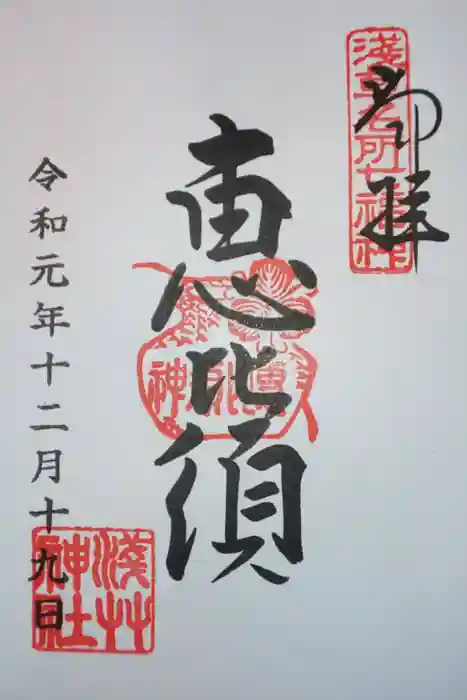 浅草名所七福神
御拝
恵比須
令和元年十二月十九日
淺艸神社